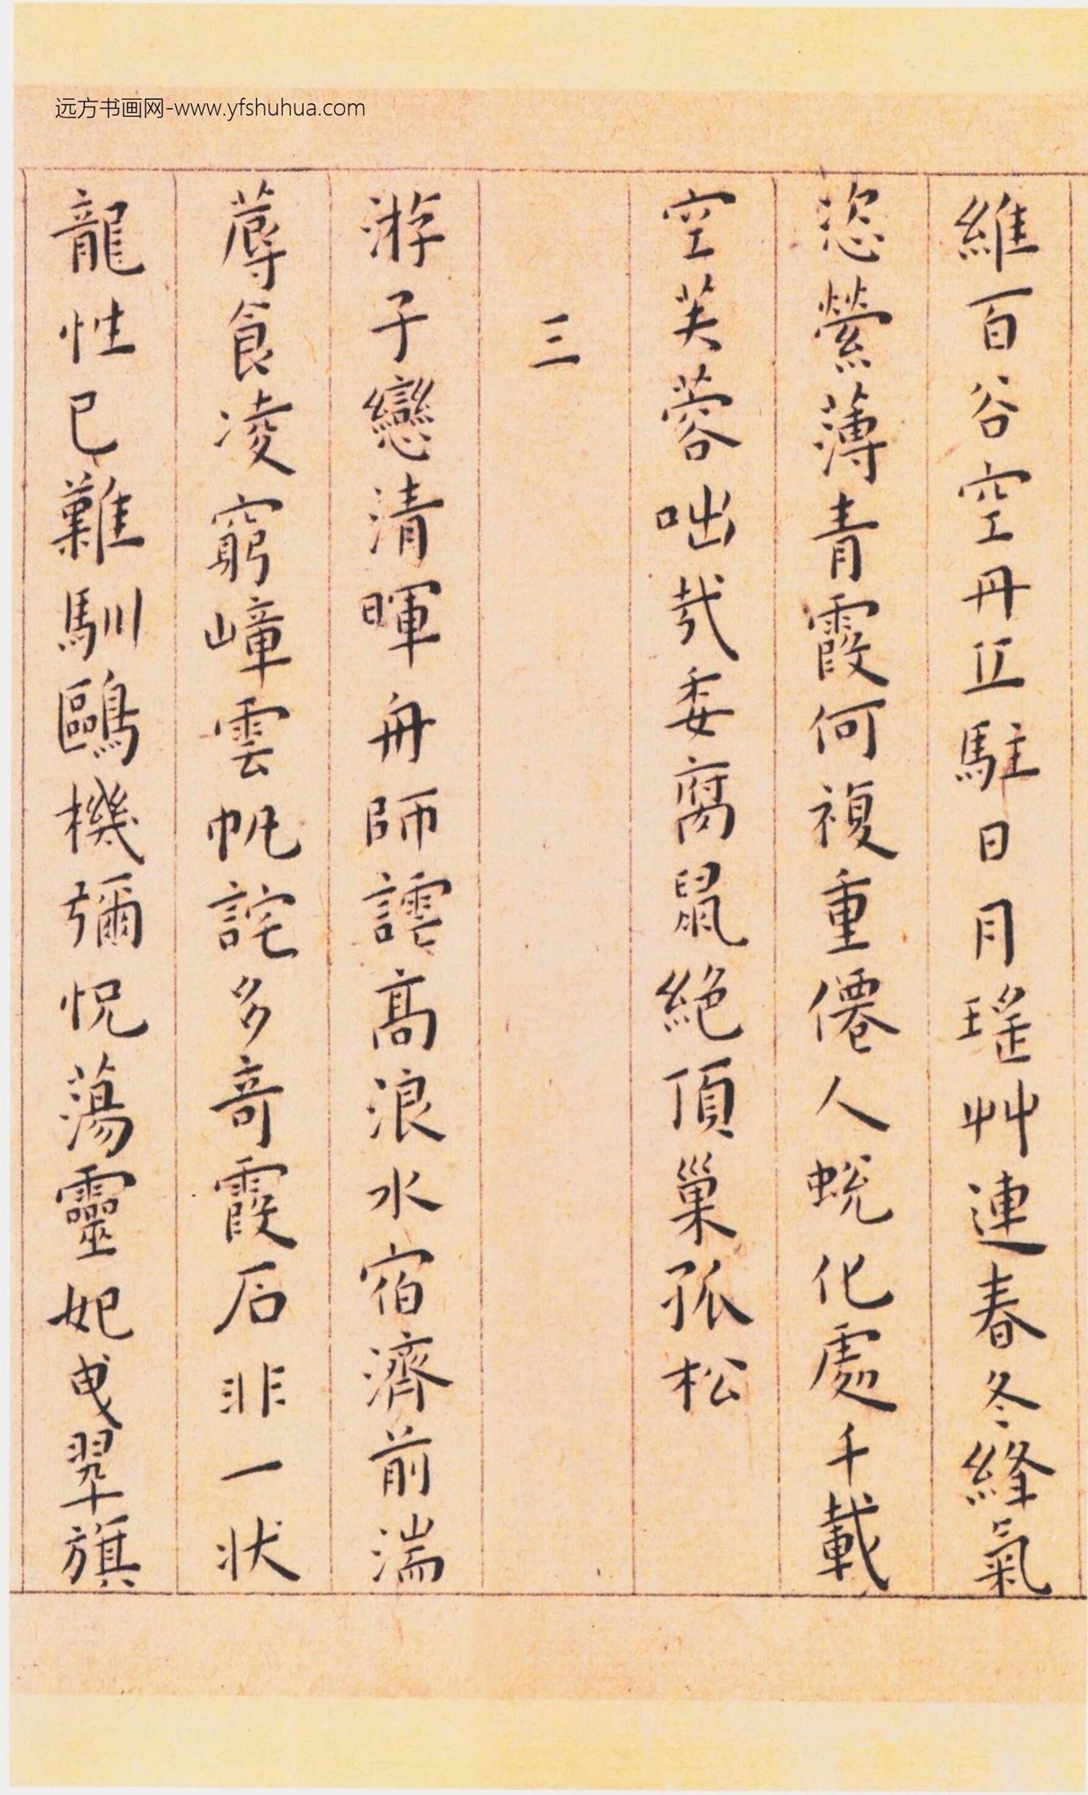 远方书画网-www.yfshuhua.com
維百谷空丹丘駐日月瑤艸連春冬絳氣
恣縈薄青霞何複重僊人蛻化處千載
空芙蓉咄哉委腐鼠絕頂巢孤松
三
游子戀清暉舟師譃高浪水宿濟前湍
蓐食凌窮嶂雲帆詫多奇霞石非一状
龍性已難馴鷗機彌怳蕩靈妃曳翠旗